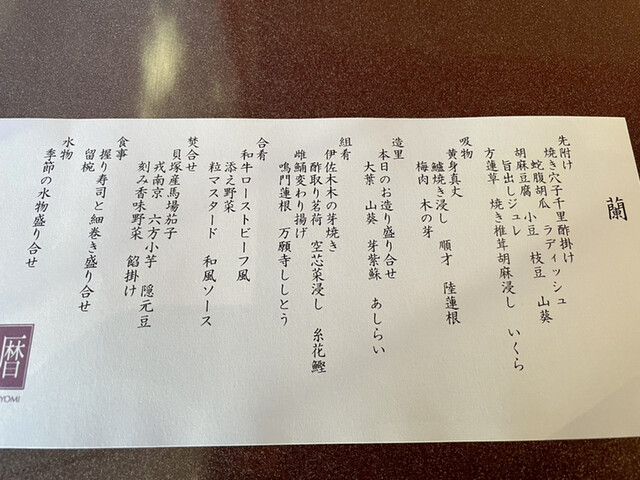 蘭
先附け
焼き穴子千里酢掛け
蛇腹胡瓜 ラディッシュ
小豆 枝豆 山葵
胡麻豆腐
旨出しジュレ
方蓮草 焼き椎茸胡麻浸し いくら
吸物
黄身真丈
鱸焼き浸し 順才 陸蓮根
梅肉 木の芽
造里
本日のお造り盛り合せ
大葉 山葵 芽紫蘇 あしらい
組肴
伊佐木木の芽焼き
酢取り茗荷 空芯菜浸し 糸花鰹
雌鯒変わり揚げ
鳴門蓮根 万願寺ししとう
合肴
和牛ローストビーフ風
添え野菜
粒マスタード 和風ソース
焚合せ
貝塚産馬場茄子
戎南京 六方小芋 隠元豆
刻み香味野菜 餡掛け
食事
握り寿司と細巻き盛り合せ
留椀
水物
季節の水物盛り合せ
暦
YOMI